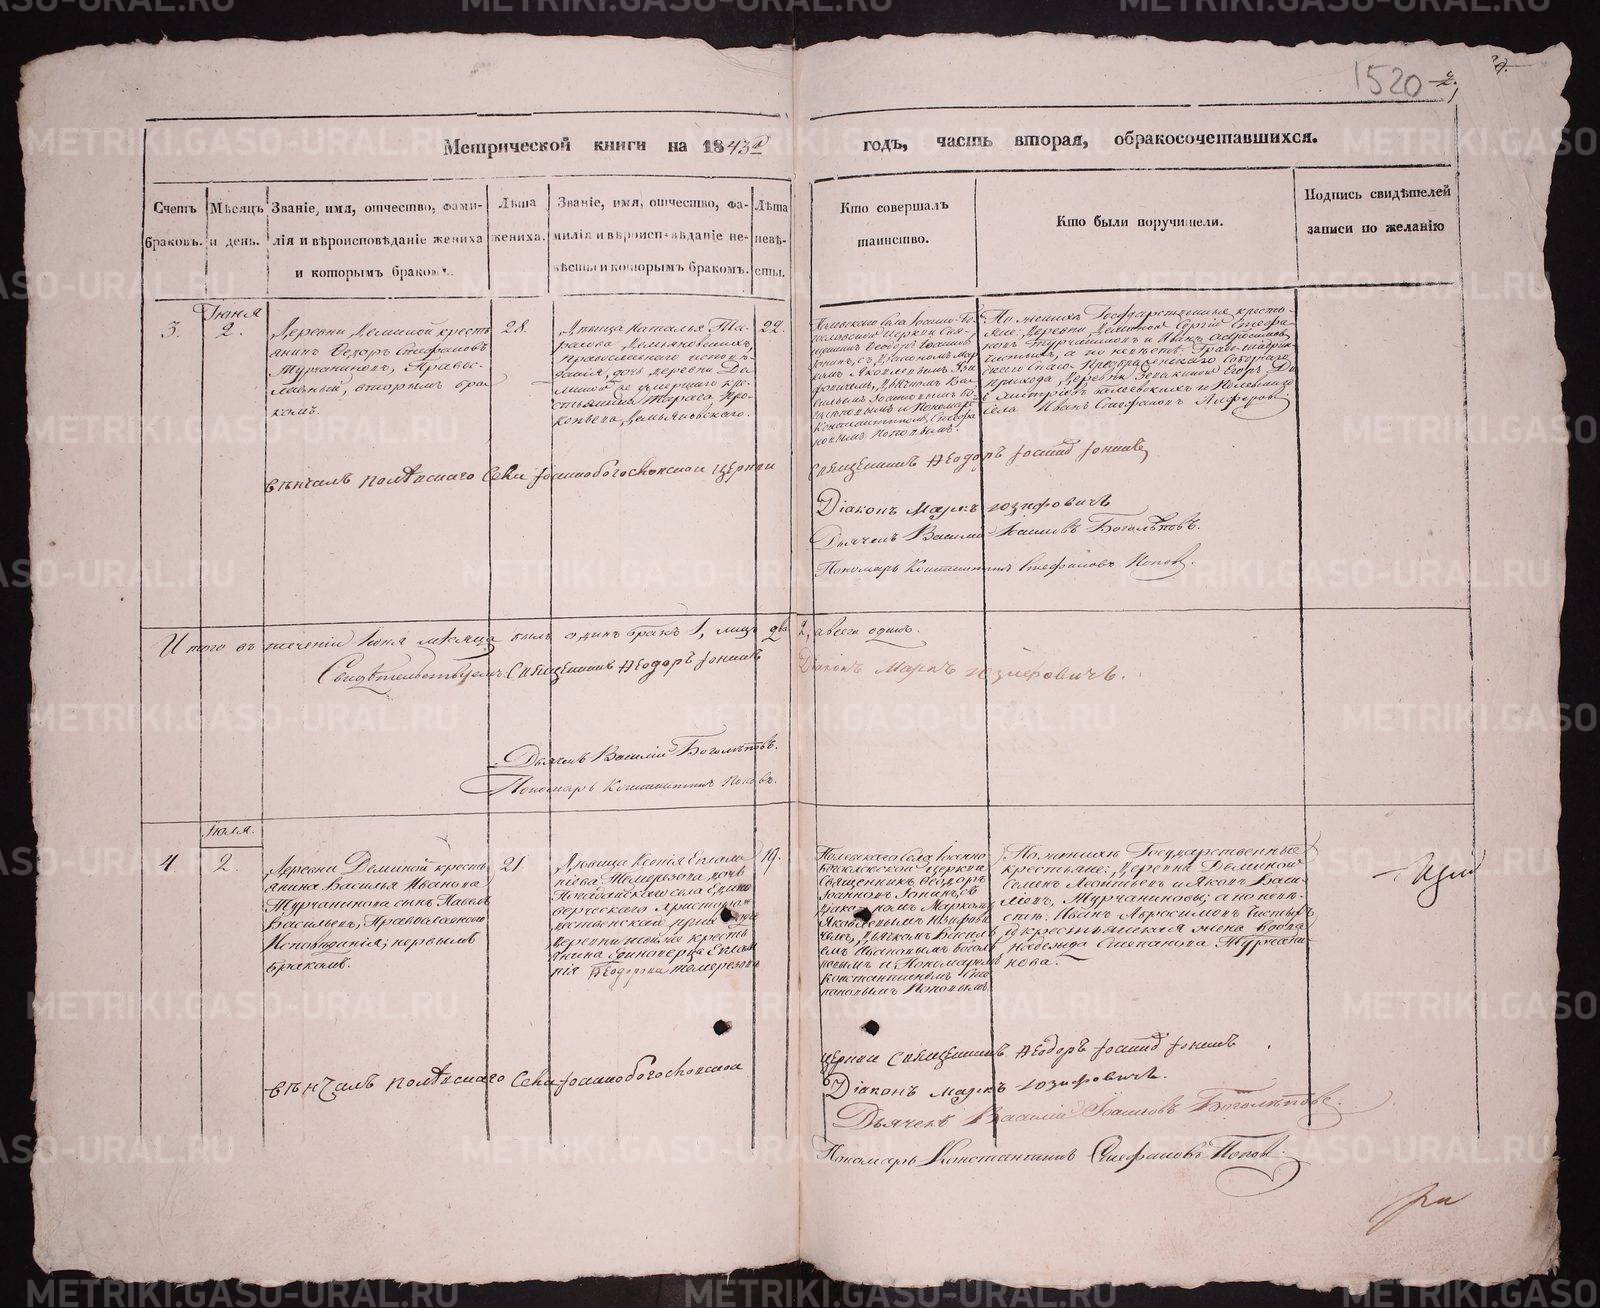 1520
Метрической книги на 1843й годъ, часть вторая, обракосочетавшихся.
Счетъ браковъ.
Мѣсяцъ и день.
Званіе, имя, отчество, фами-
лія и вѣроисповѣданіе жениха
и которымъ бракомъ.
Лѣта
жениха.
Званіе, имя, отчество, фа-
милія и вѣроисповѣданіе не-
вѣсты и которымъ бракомъ.
Лѣта
невѣ-
сты.
Кто совершалъ
таинство.
Кто были поручители.
Подпись свидѣтелей
записи по желанію
3.
Іюня
2.
Деревни Деминой кресть
янинъ Ѳедоръ Стефановъ
Турчаниновъ, Правос-
лавный, вторымъ бра
комъ.
28.
Дѣвица Наталья Та-
расова Демьяновскихъ,
православнаго исповѣ-
данія, дочь деревни Де-
миной же умершаго кре-
стьянина Тараса Про-
копьева Демьяновскаго.
22.
Полевскаго Села Іоанно-Бо-
гословской Церкви Свя-
щенникъ Ѳеодоръ Іоанновъ
Іонинъ, съ Діакономъ Мар
комъ Яковлевымъ Юзи
фовичемъ, Дьячкомъ Ва-
сильемъ Іоанновымъ Бо-
голѣповымъ и Пономаремъ
Константиномъ Стефа
новымъ Поповымъ.
По женихѣ Государственные кресть-
яне: Деревни Деминой Сергій Стефа-
новъ Турчаниновъ и Иванъ Абросимовъ
Чистыхъ, а по невѣстѣ:
скаго Спасо-Преображенскаго Соборнаго
прихода, Деревни
села Иванъ Стефановъ Алферовъ
вѣнчалъ Полевскаго Села Іоанно богословской церкви
Священникъ Ѳеодоръ Іоанновъ Іонинъ
Діаконъ Маркъ Юзифовичъ
Дьячекъ Василій Іоанновъ Боголѣповъ.
Пономарь Константинъ Стефановъ Поповъ.
Итого въ теченіи Іюня мѣсяца былъ одинъ бракъ 1, лицъ два 2, а всего одинъ.
Свидѣтельствуемъ: Священникъ Ѳеодоръ Іонинъ
Діаконъ Маркъ Юзифовичъ.
Дьячекъ Василій Боголѣповъ.
Пономарь Константинъ Поповъ.
4
Іюля.
2.
Деревни Деминой кресть
янина Василья Иванова
Турчанинова сынъ Павелъ
Васильевъ, Православнаго
Исповѣданія; первымъ
бракомъ.
21
Дѣвица Ксенія Евлам-
піева Темерезова дочь
села Едино
верческаго Христорож
дественскаго прихода
деревни той же кресть
янина Единоверца Евлам
пія Ѳеодорова Темерезова
19.
Полевскаго Села Іоанно
Богословской церкви
Священникъ Ѳеодоръ
Іоанновъ Іонинъ, съ
Діакономъ Маркомъ
Яковлевымъ Юзифови
чемъ, Дьячкомъ Василь
емъ Ивановымъ Боголѣ
повымъ и Пономаремъ
Константиномъ Сте
пановымъ Поповымъ.
По женихѣ Государственные
крестьяне: Деревни Деминой
Семенъ Леонтьевъ и Яковъ Васи-
льевъ, Турчаниновы; а по невѣ-
стѣ: Иванъ Абросимовъ Чистыхъ
и крестьянская жена вдова
Надежда Степанова Турчани-
нова.
вѣнчалъ Полевскаго Села Іоанно богословской
церкви Священникъ Ѳеодоръ Іоанновъ Іонинъ
Діаконъ Маркъ Юзифовичъ.
Дьячекъ Василій Іоанновъ Боголѣповъ.
Пономарь Константинъ Стефановъ Поповъ.
METRIKI.GASO-URAL.RU